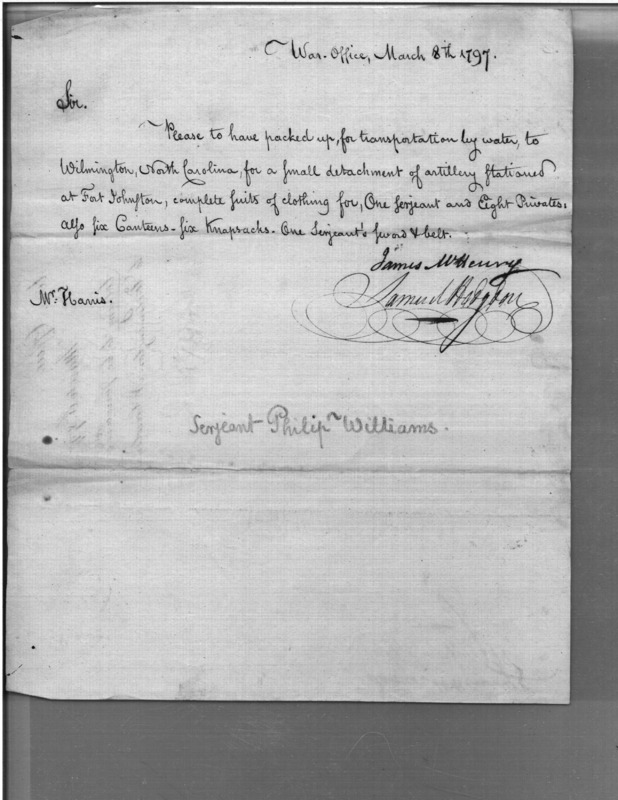 War-Office, March 8th 1797.
Sir.
Please to have packed up, for transportation by water, to
Wilmington, North Carolina, for a small detachment of artillery stationed
at Fort Johnston, complete suits of clothing for, One Serjeant and Eight Privates;
also six Canteens - six Knapsacks - One Serjeant's sword & belt.
James McHenry
Samuel Hodgdon
Mr. Harris.
Serjeant Philip Williams.